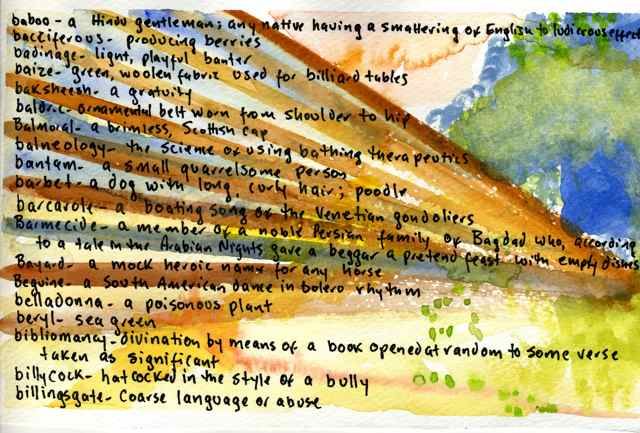 baboo - a Hindu gentleman; any native having a smattering of English to ludicrous effect
bacciferous - producing berries
badinage - light, playful banter
baize - green, woolen fabric used for billiard tables
baksheesh - a gratuity
baldric - ornamental belt worn from shoulder to hip
Balmoral - a brimless, Scottish cap
balneology - the science of using bathing therapeutics
bantam - a small quarrelsome person
barbet - a dog with long, curly hair; poodle
barcarole - a boating song of the Venetian gondoliers
Barmecide - a member of a noble Persian family of Bagdad who, according
to a tale in the Arabian Nights gave a beggar a pretend feast with empty dishes
Bayard - a mock heroic name for any horse
Beguine - a South American dance in bolero rhytum
belladonna - a poisonous plant
beryl - sea green
bibliomancy - divination by means of a book opened at random to some verse
taken as significant
billycock - hat cocked in the style of a bully
billingsgate - Coarse language or abuse